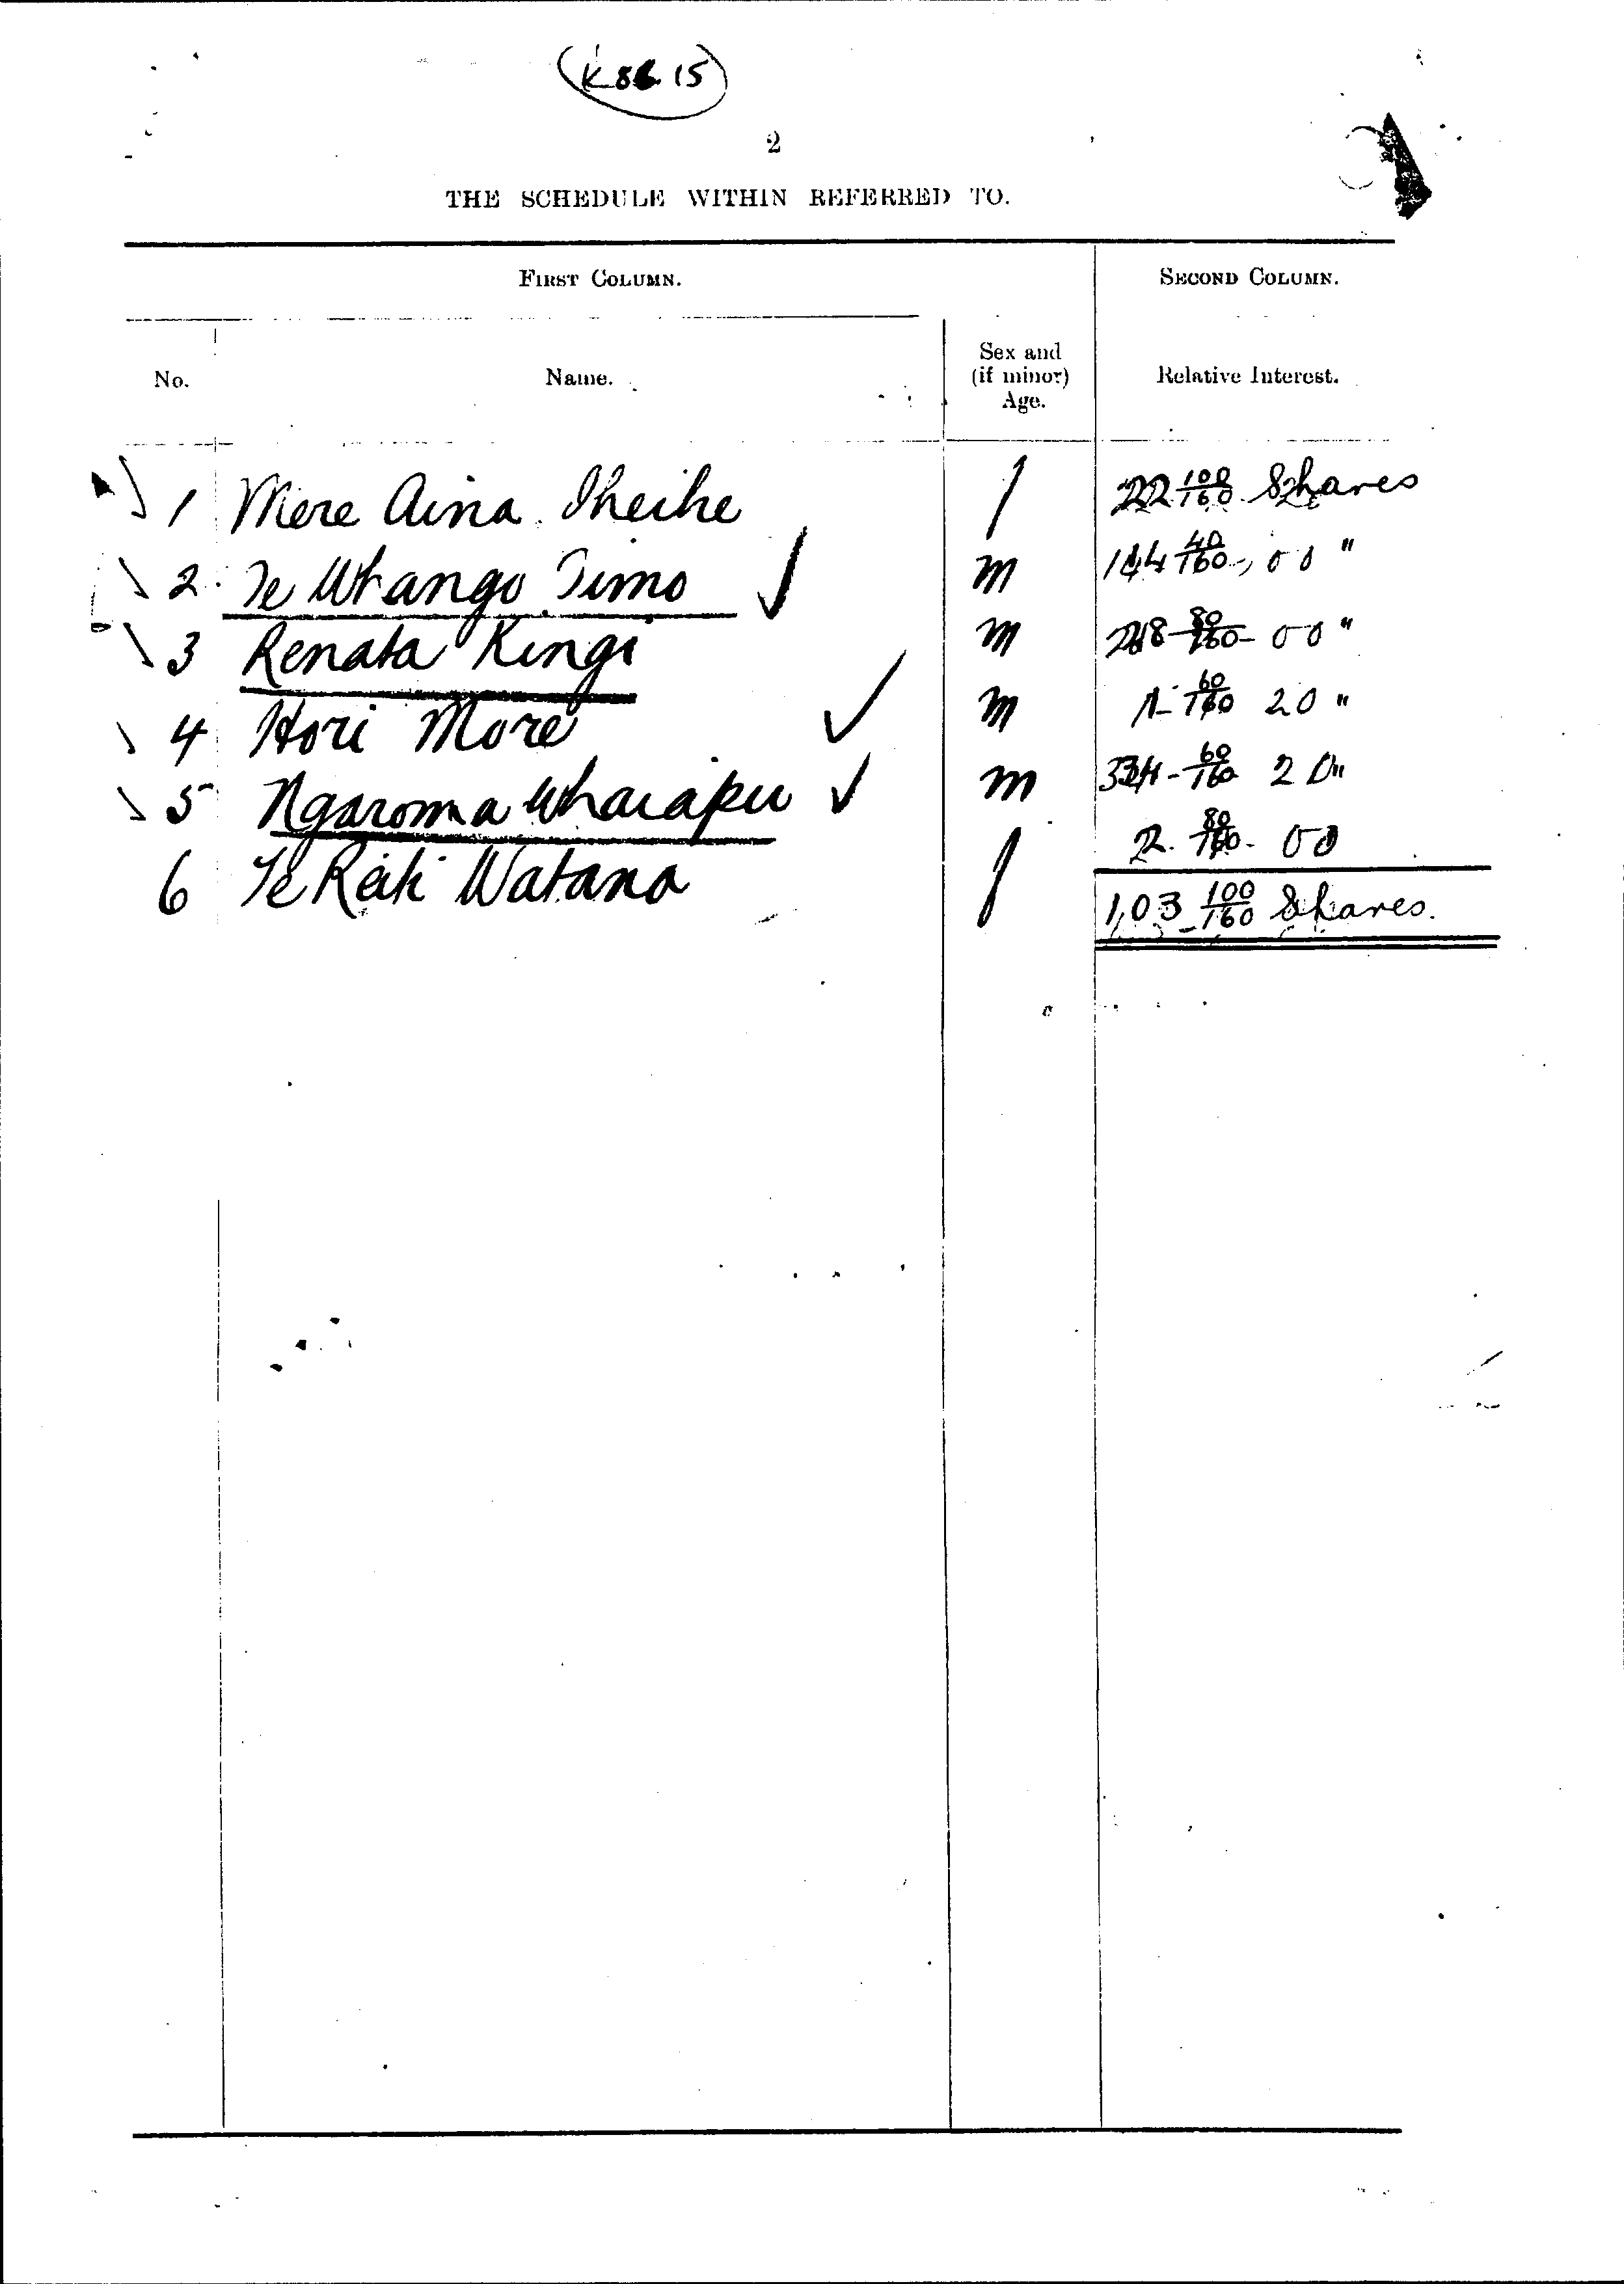 K 86 15
2
THE SCHEDULE WITHIN REFERRED TO.
FIRST COLUMN. SECOND COLUMN.
No. Name. Sex and (if minor) Age. Relative Interest.
1 Mere Aina Iheihe f 22 100/160 Shares
2 Te Whango Timo m 40/160 00 "
3 Renata Kingi m 80/160 00 "
4 Hori More m 1 60/160 20 "
5 Ngaroma Wharapu m 60/160 20 "
6 Te Rati Watana f 2 80/160 00
1,03 100/160 Shares.